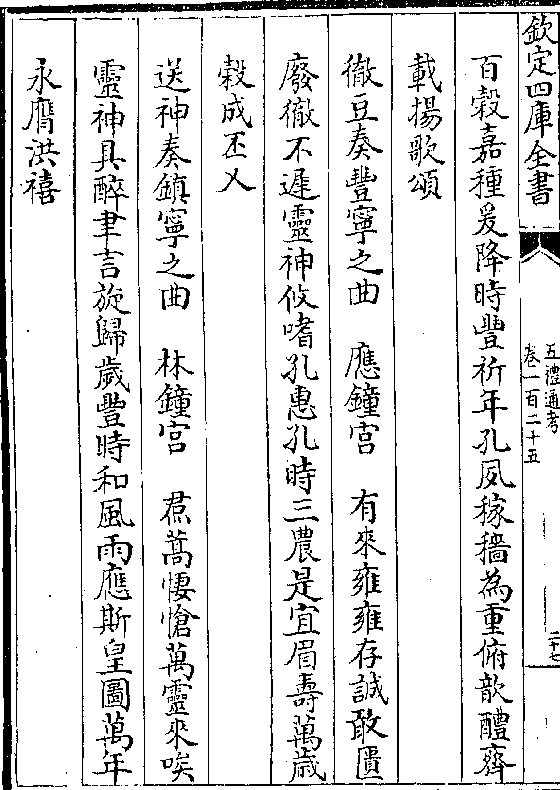 欽定四庫全書
五禮通考
卷一百二十五
二十七
百穀嘉種爰降時豐祈年孔夙稼穡為重俯歆醴齊
載揚歌頌
徹豆奏豐寧之曲　應鐘宫　有來雍雍存誠敢匱
廢徹不遲靈神攸嗜孔惠孔時三農是宜眉壽萬歲
穀成丕乂
送神奏鎮寧之曲　林鐘宫　焄蒿悽愴萬靈來唉
靈神具醉聿言旋歸歲豐時和風雨應斯皇圖萬年
永膺洪禧